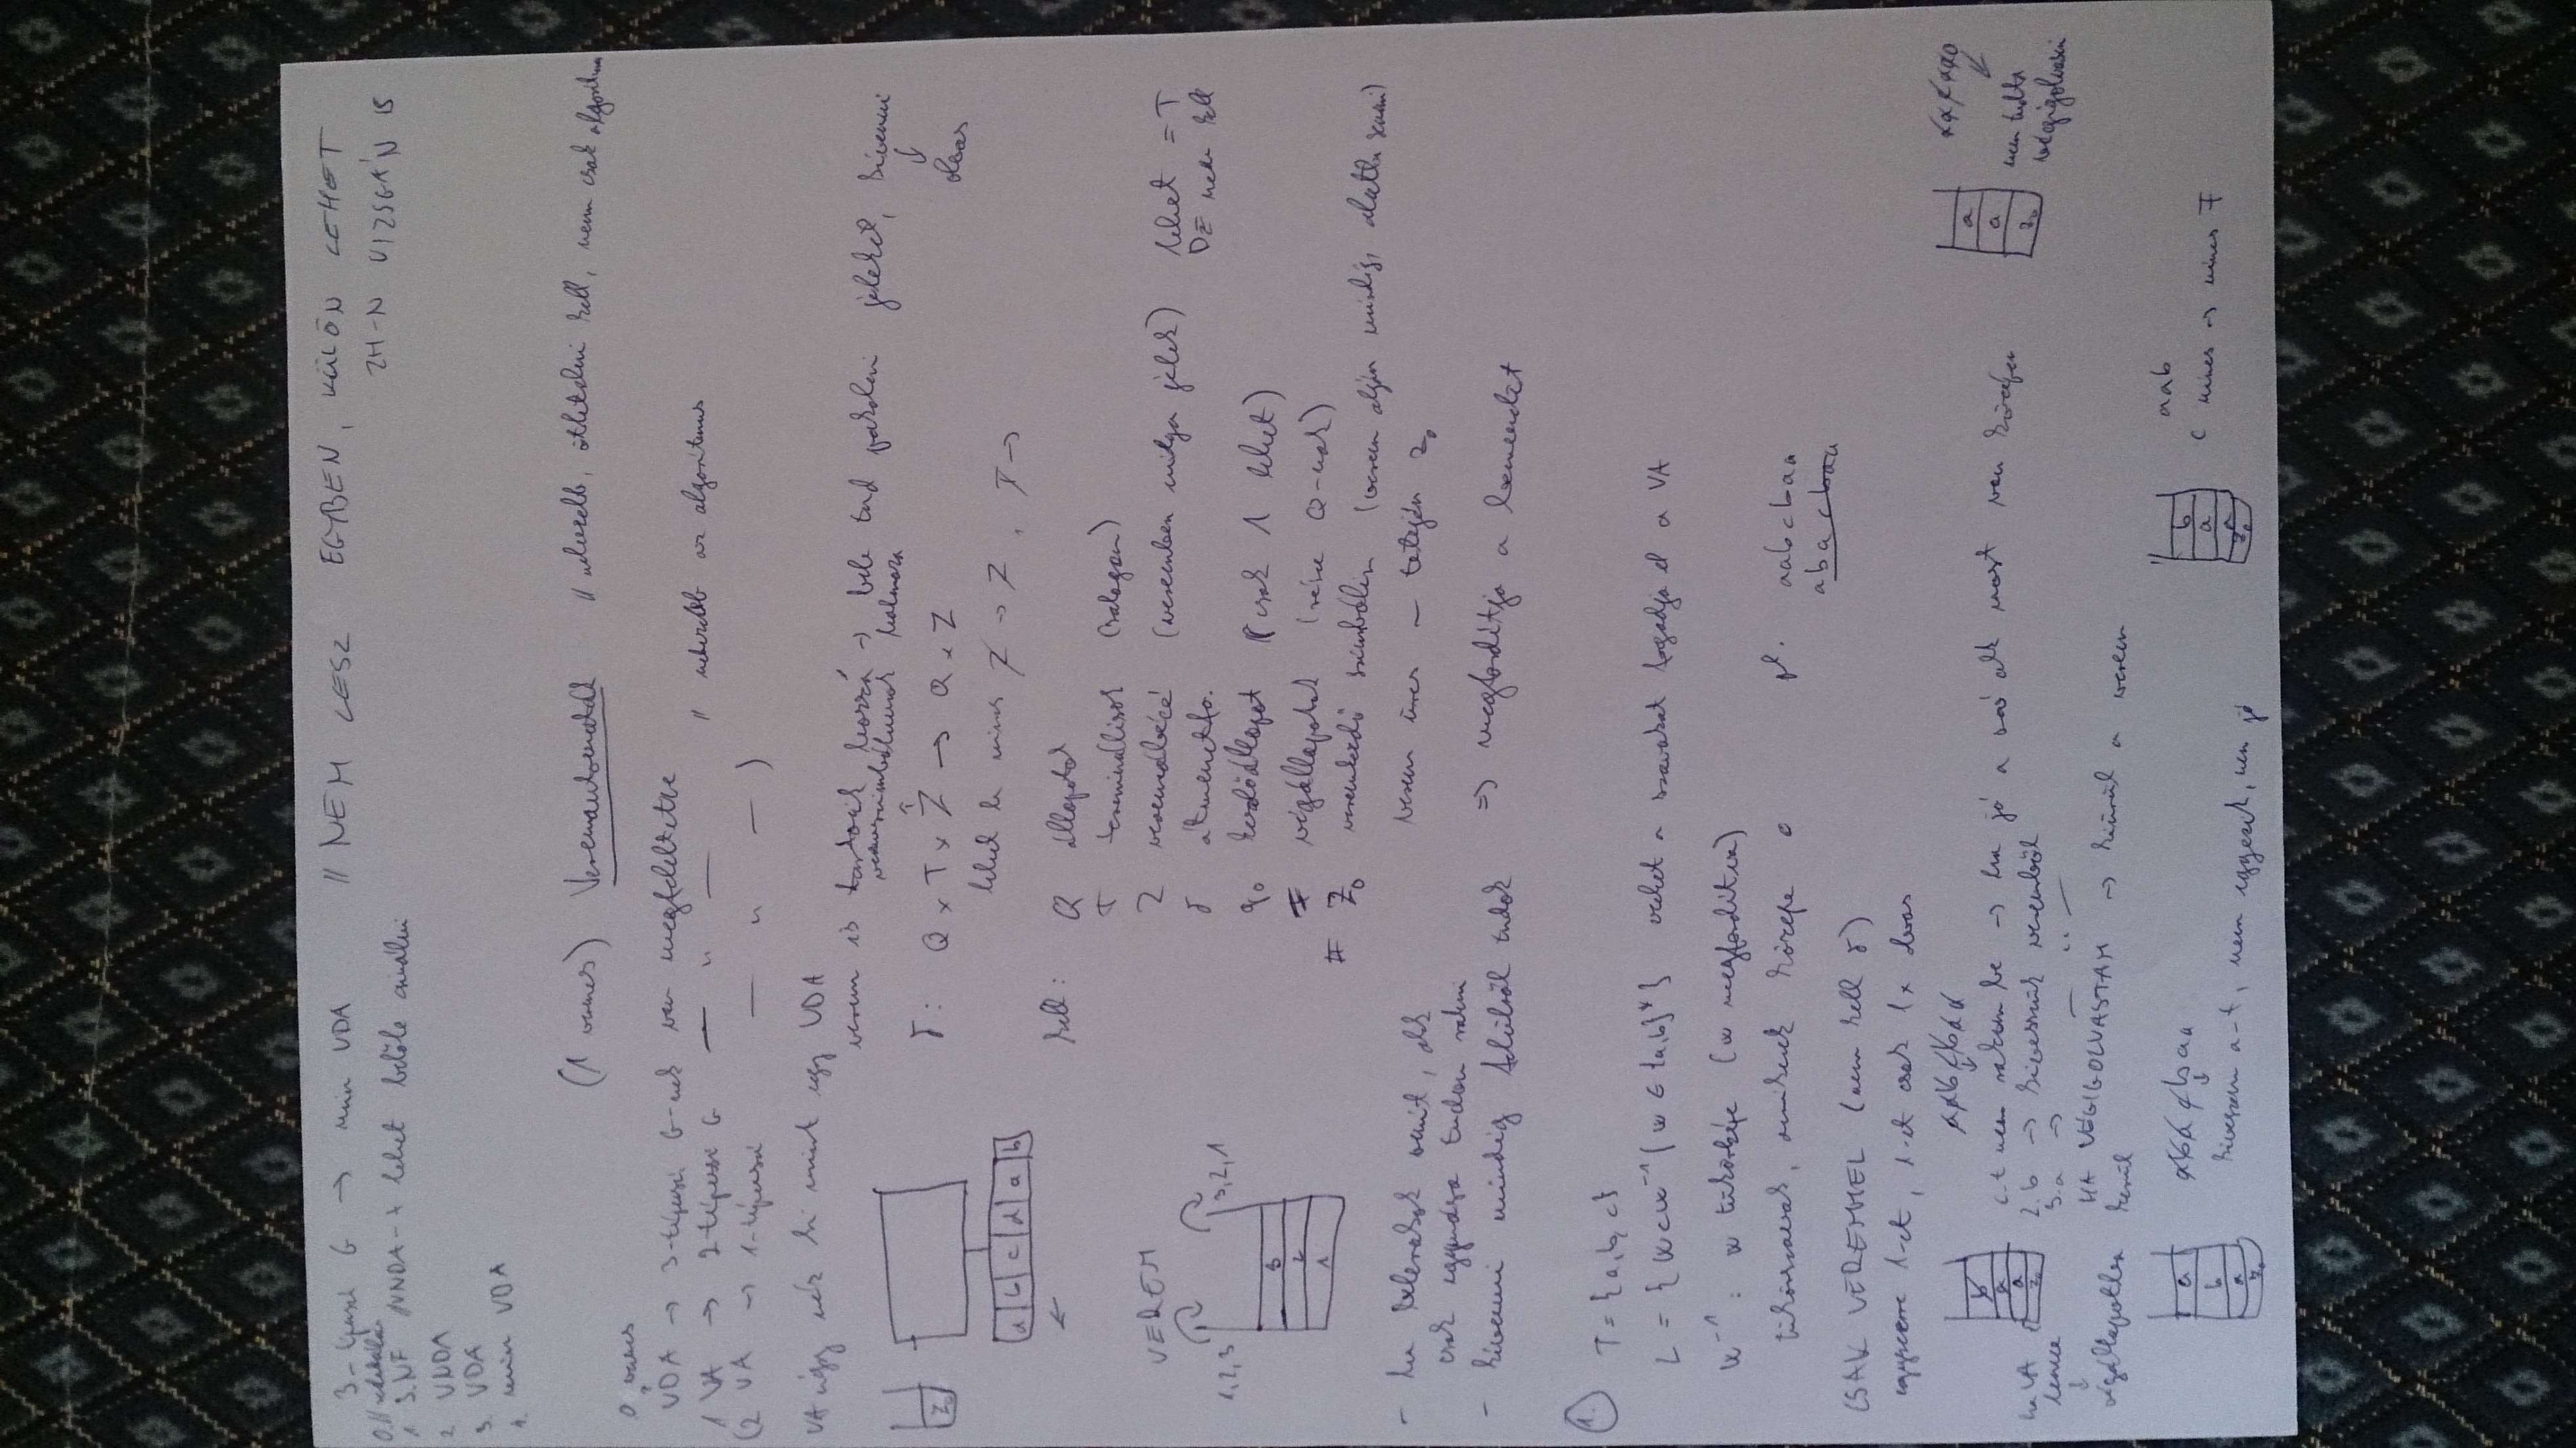 3-típusú G → min VDA // NEM LESZ EGYBEN, KÜLÖN LEHET
ZH-N VIZSGÁN IS
0. //
1. 3.NF //VNDA-t lehet belőle csinálni
2. VNDA
3. VDA
4. min VDA
(1 vermes) Veremautomaták // nehezebb, ötletelni kell, nem csak algoritmus
0 vermes
VDA → 3-típusú G-nek van megfeleltetve
1 VA → 2-típusú G — " — // nehezebb az algoritmus
(2 VA → 1-típusú — " — )
VA úgy néz ki mint egy VDA
verem is tartozik hozzá → bele tud pakolni jeleket, kivenni
↓
olvas
veremszimbólumok halmaza
↑
δ: Q × T × Z → Q × Z
lehet ha nincs Z → Z, T →
Z₀
a b c d a b
←
kell: Q állapotok
T terminálisok (szalagon)
Z veremábécé (veremben milyen jelek) lehet = T
DE nem kell
δ átmenetfv.
q₀ kezdőállapot (csak 1 lehet)
F végállapotok (része Q-nak)
Z₀ veremkezdő szimbólum (verem alján mindig, alatta semmi)
VEREM
1,2,3 3,2,1
3
2
1
- ha belerakok vmit, akk
csak egymásra tudom rakni
verem üres — tetején z₀
- kivenni mindig felülről tudok => megfordítja a bemenetet
1.
T = {a, b, c}
L = {wcw⁻¹ | w ∈ {a,b}*} ezeket a szavakat fogadja el a VA
w⁻¹: w tükörképe (w megfordítva)
tükörszavak, amiknek közepe c pl. aabcbaa
abacbaa
CSAK VEREMMEL (nem kell δ)
egyszerre 1-et, 1-et csak 1x olvas
b
a
a
z₀
aabcbaa
↓
c-t nem rakom be → ha jó a szó akk most van közepén
2. b → kivesszük veremből
3. a → — " —
HA VÉGIGOLVASTAM → kiürül a verem
ha VA lenne
↓
végállapotba kerül
a
a
z₀
nem tudta
végigolvasni
a
b
a
z₀
abacbaa
↓
kiveszem a-t, nem egyezik, nem jó
b
a
a
z₀
aab
c nincs → nincs F